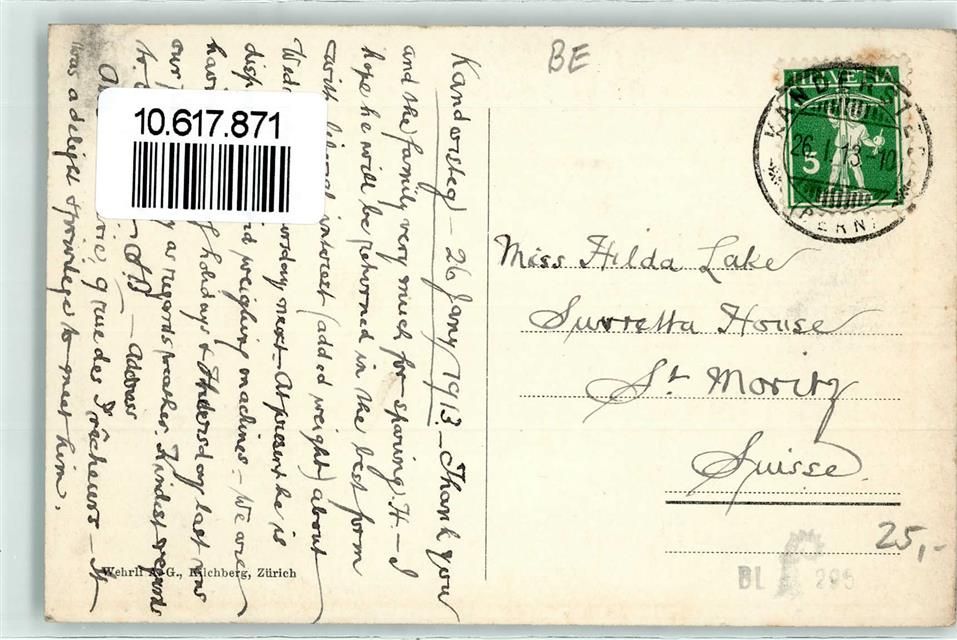 Kandersteg - 26 Jany 1913. - Thank you
and the family very much for sparing H - I
hope he will be returned in the best form
with liberal interest (added weight) about
Wed rsday next - At present he is
disp rd weighing machines - We are
hav g holidays & Thursday last was
our y as regards weather. Kindest regards
to
J.B. - Address
9 rue des Pêcheurs - It
was a delight & privilege to meet him.
10.617.871
BE
HELVETIA
5
KANDERSTEG
26.I.13.-10
(BERN)
Miss Hilda Lake
Suvretta House
St. Moritz
Suisse
25,-
BL 295
Wehrli A.-G., Kilchberg, Zürich